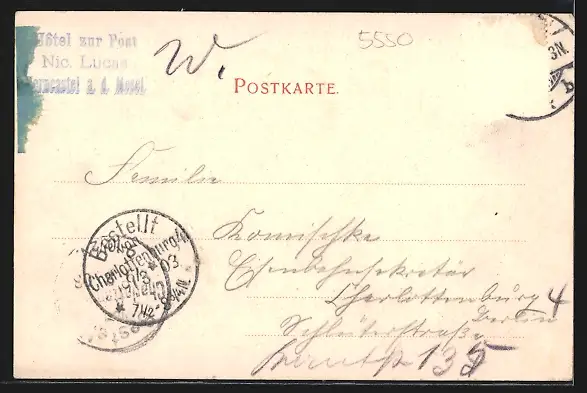 Hôtel zur Post
Nic. Lucas
Berncastel a. d. Mosel
W.
5550
POSTKARTE.
3N.
Familie
Komischke
Eisenbahnsekretär
Charlottenburg 4
Berlin
Schlüterstraße
135
Bestellt
Charlottenburg
03
7½-8½N.